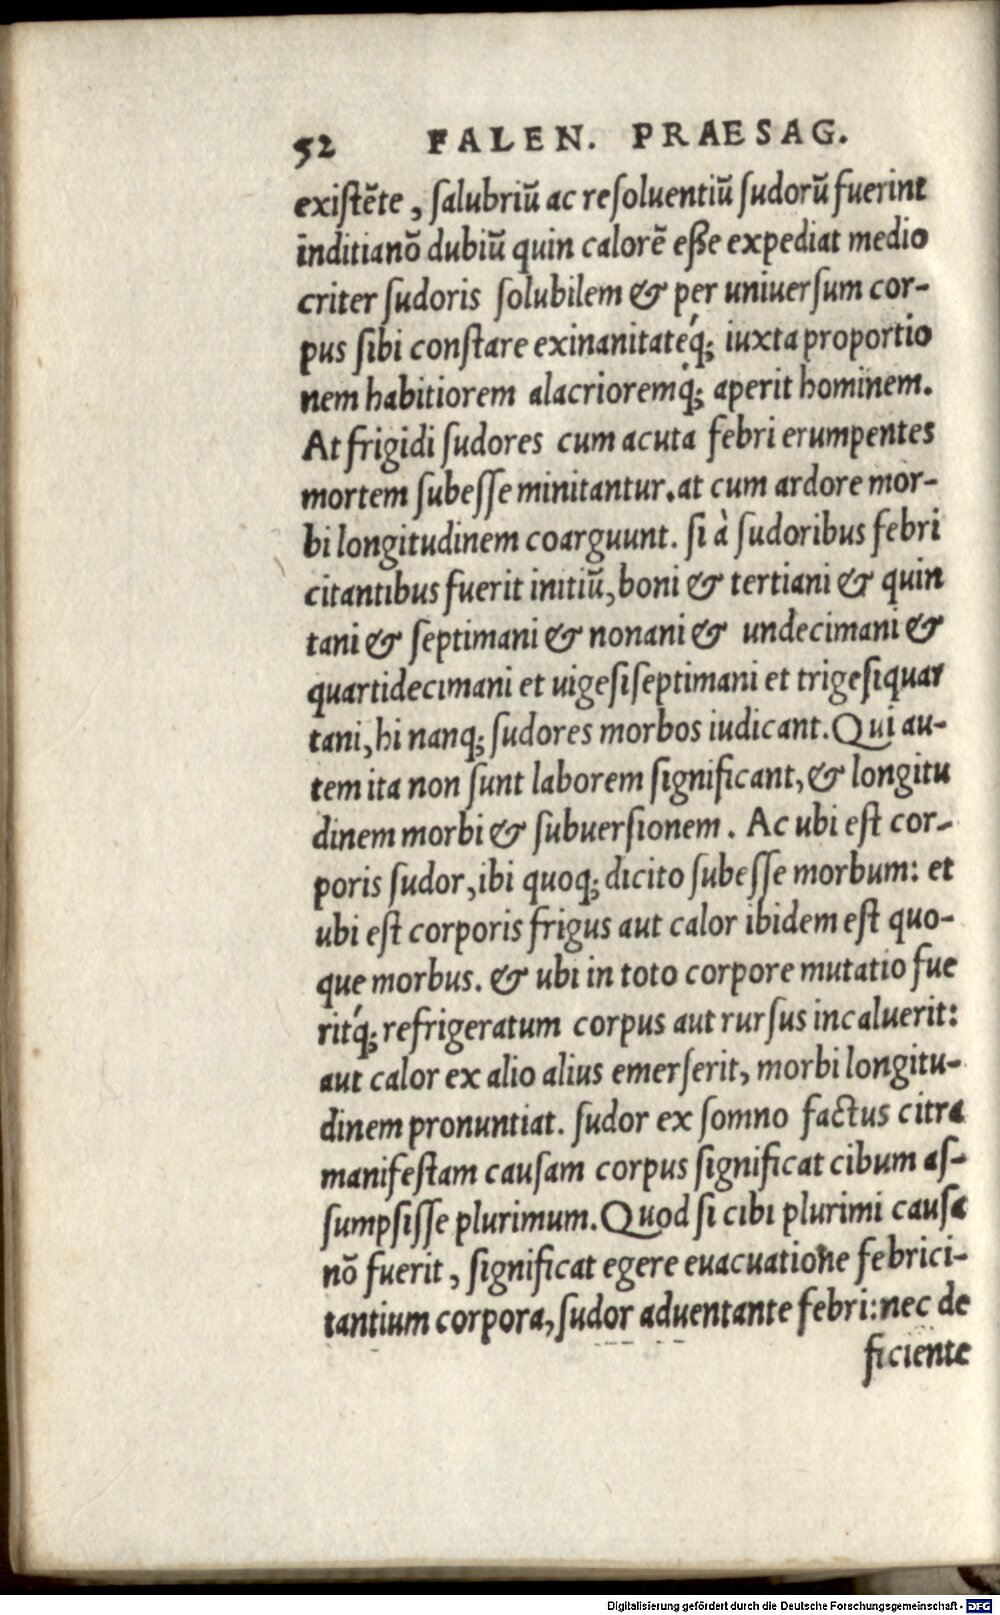 52 FALEN. PRAESAG.
existẽte, salubriũ ac resoluentiũ sudorũ fuerint
inditianõ dubiũ quin calorẽ eße expediat medio
criter sudoris solubilem & per uniuersum cor-
pus sibi constare exinanitateq́; iuxta proportio
nem habitiorem alacrioremq́; aperit hominem.
At frigidi sudores cum acuta febri erumpentes
mortem subesse minitantur. at cum ardore mor-
bi longitudinem coarguunt. si à sudoribus febri
citantibus fuerit initiũ, boni & tertiani & quin
tani & septimani & nonani & undecimani &
quartidecimani et uigesiseptimani et trigesiquar
tani, hi nanq; sudores morbos iudicant. Qui au-
tem ita non sunt laborem significant, & longitu
dinem morbi & subuersionem. Ac ubi est cor-
poris sudor, ibi quoq; dicito subesse morbum: et
ubi est corporis frigus aut calor ibidem est quo-
que morbus. & ubi in toto corpore mutatio fue
ritq́; refrigeratum corpus aut rursus incaluerit:
aut calor ex alio alius emerserit, morbi longitu-
dinem pronuntiat. sudor ex somno factus citra
manifestam causam corpus significat cibum as-
sumpsisse plurimum. Quod si cibi plurimi causa
nõ fuerit, significat egere euacuatione febrici-
tantium corpora, sudor aduentante febri: nec de
ficiente
Digitalisierung gefördert durch die Deutsche Forschungsgemeinschaft - DFG